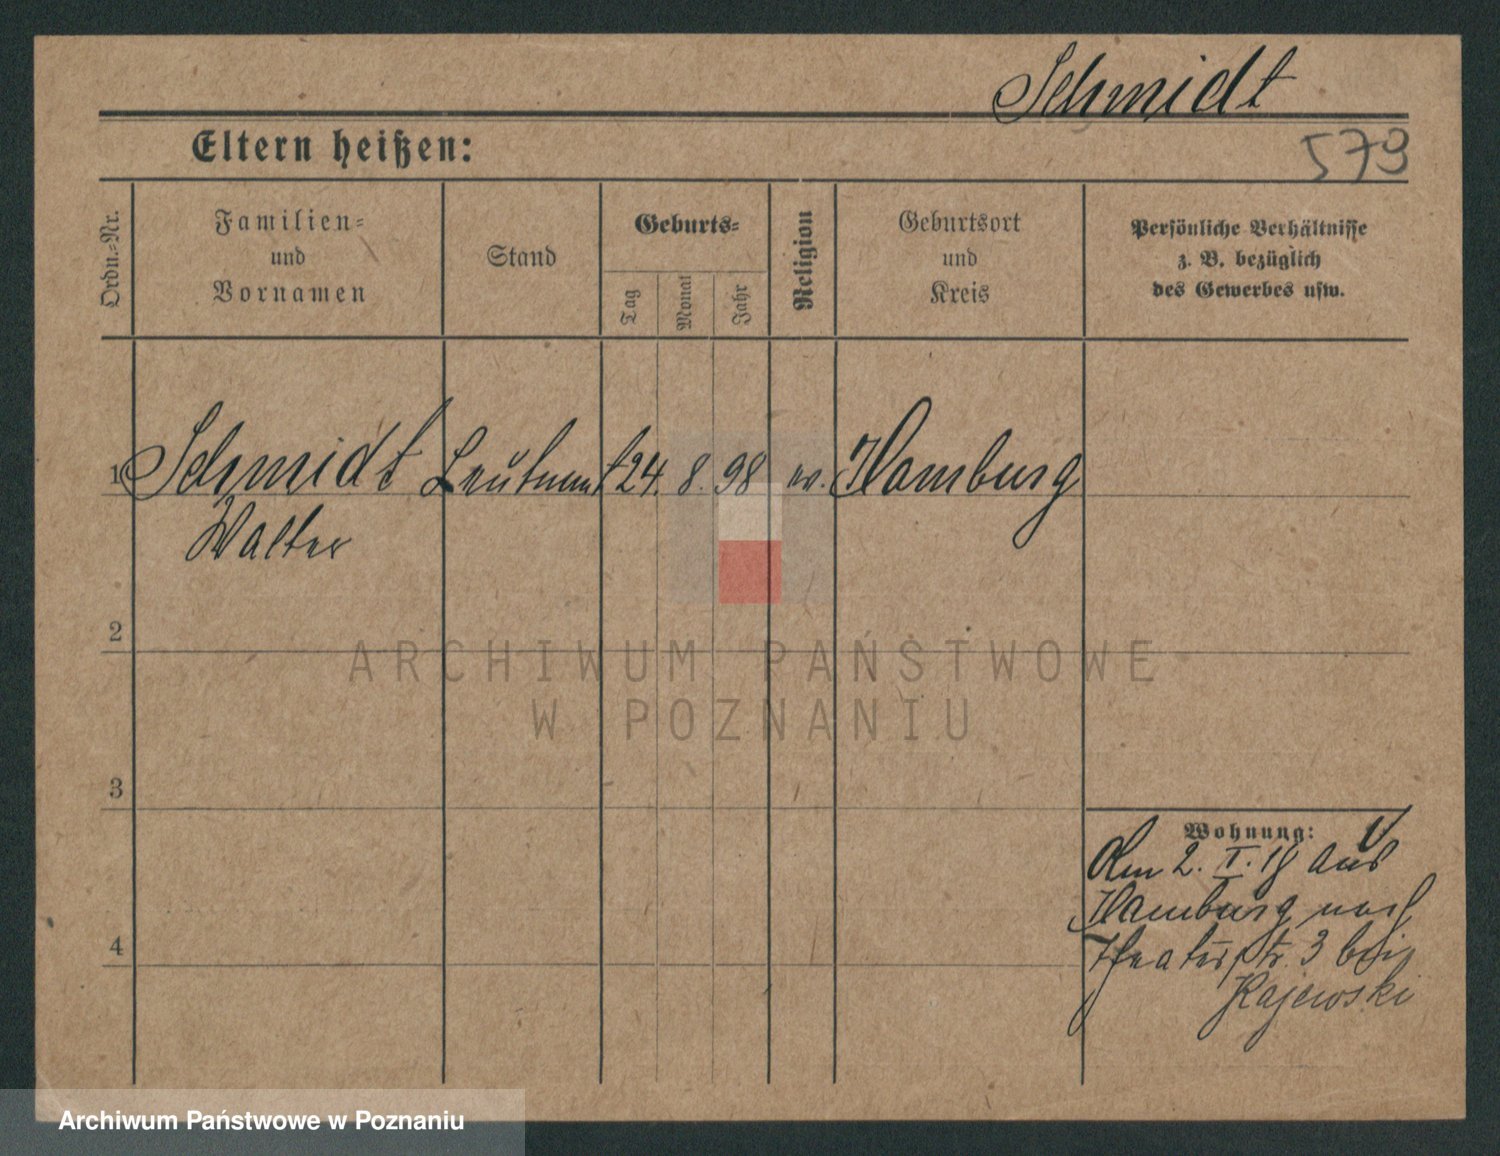 Schmidt
Eltern heißen:
579
Ordn.-Nr.
Familien-
und
Vornamen
Stand
Geburts-
Tag
Monat
Jahr
Religion
Geburtsort
und
Kreis
Persönliche Verhältnisse
z. B. bezüglich
des Gewerbes usw.
1 Schmidt Leutnant 24. 8. 98 ev. Hamburg
Walter
2
ARCHIWUM PAŃSTWOWE
W POZNANIU
3
Wohnung:
Am 2. I. 18 aus
Hamburg nach
Theaterstr. 3 bei
Kajewski
4
Archiwum Państwowe w Poznaniu